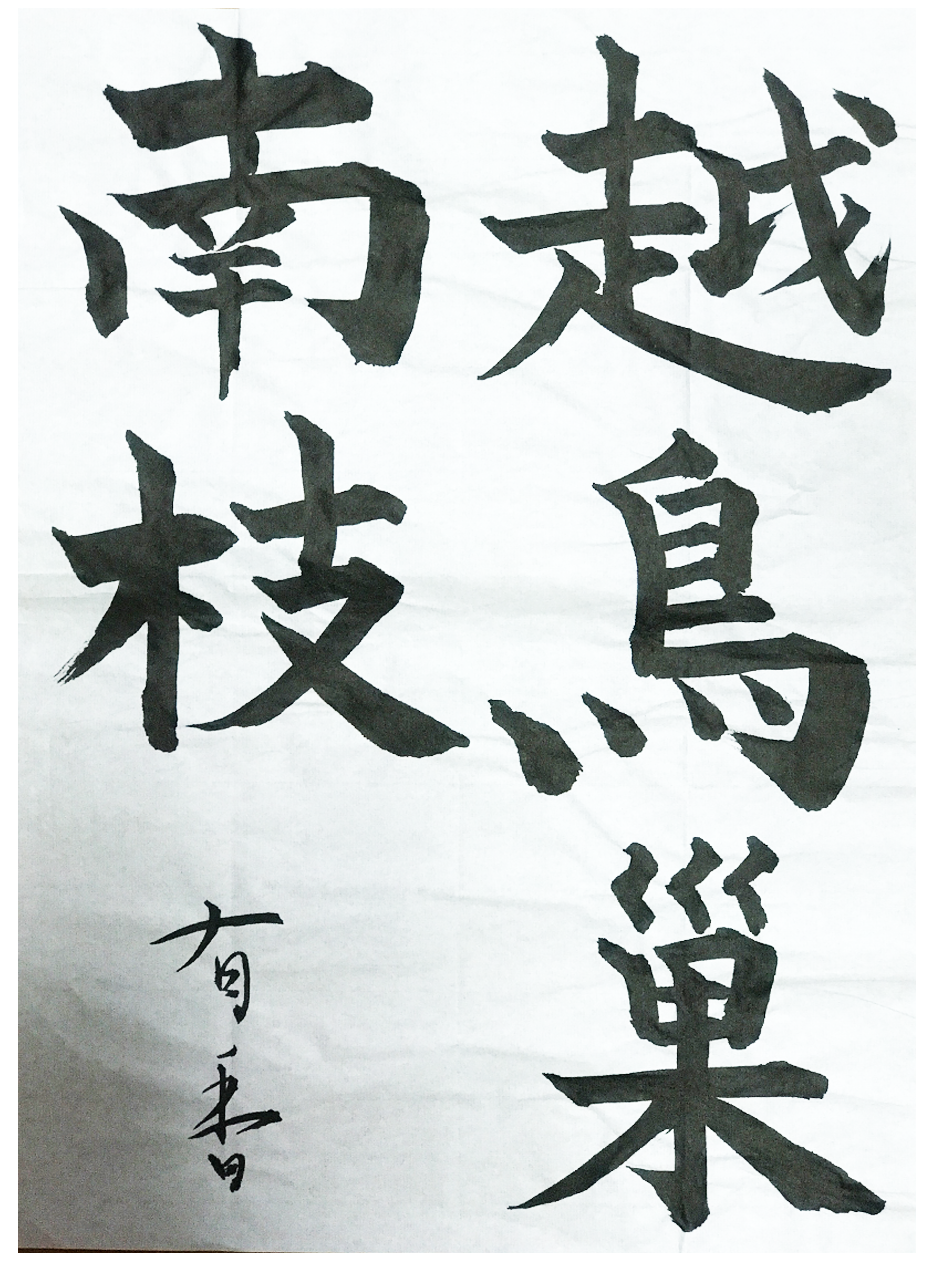 越鳥巣
南枝
有香